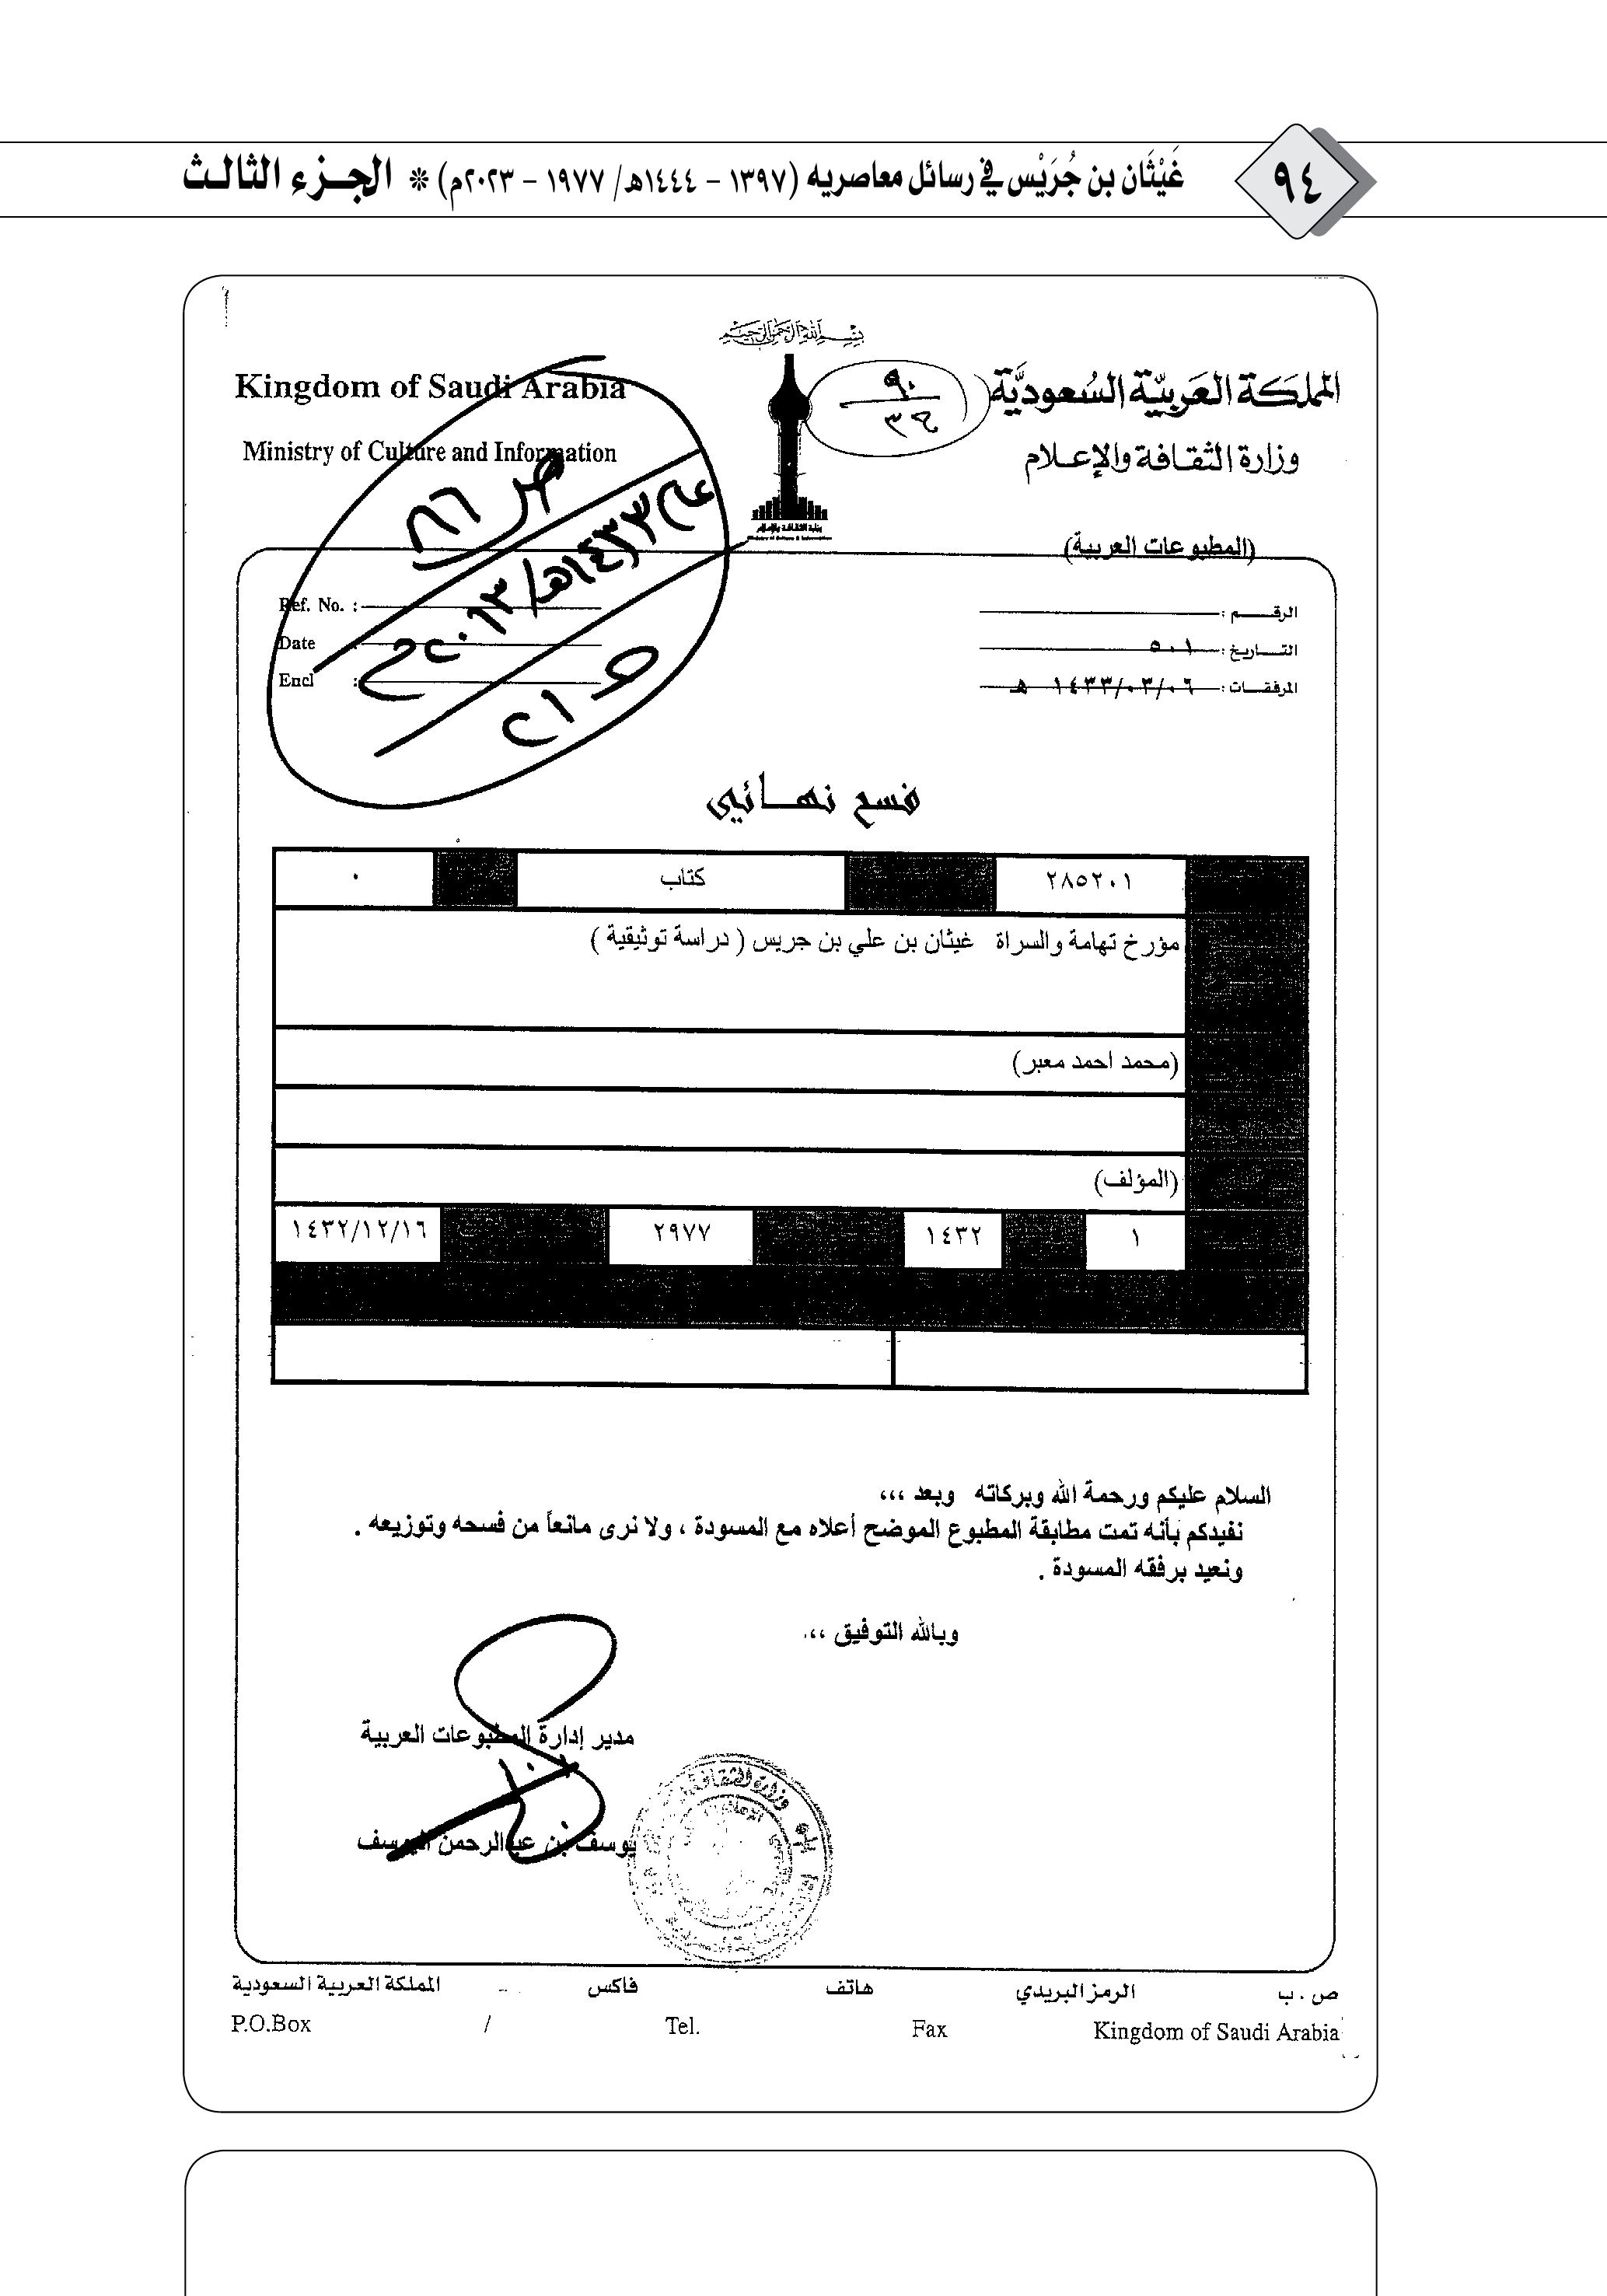 ٩٤
غَيْثَان بن جُرَيْس في رسائل معاصريه (١٣٩٧ – ١٤٤٤هـ/ ١٩٧٧ – ٢٠٢٣م) * الجزء الثالث
بسم الله الرحمن الرحيم
المملكة العربية السعودية
Kingdom of Saudi Arabia
٩٠
٣٤
وزارة الثقافة والإعلام
Ministry of Culture and Information
(المطبوعات العربية)
Ref. No. :
Date :
Encl :
الرقم :
التاريخ : ٥٠١
المرفقات : ١٤٣٣/٠٣/٠٦ هـ
فسح نهائي
٢٨٥٢٠١ كتاب ٠
مؤرخ تهامة والسراة غيثان بن علي بن جريس ( دراسة توثيقية )
(محمد احمد معبر)
(المؤلف)
١ ١٤٣٢ ٢٩٧٧ ١٤٣٢/١٢/١٦
السلام عليكم ورحمة الله وبركاته وبعد ،،،
نفيدكم بأنه تمت مطابقة المطبوع الموضح أعلاه مع المسودة ، ولا نرى مانعاً من فسحه وتوزيعه .
ونعيد برفقه المسودة .
وبالله التوفيق ،،.
مدير إدارة المطبوعات العربية
يوسف بن عبدالرحمن اليوسف
وزارة الثقافة
ص . ب الرمز البريدي هاتف فاكس المملكة العربية السعودية
P.O.Box / Tel. Fax Kingdom of Saudi Arabia